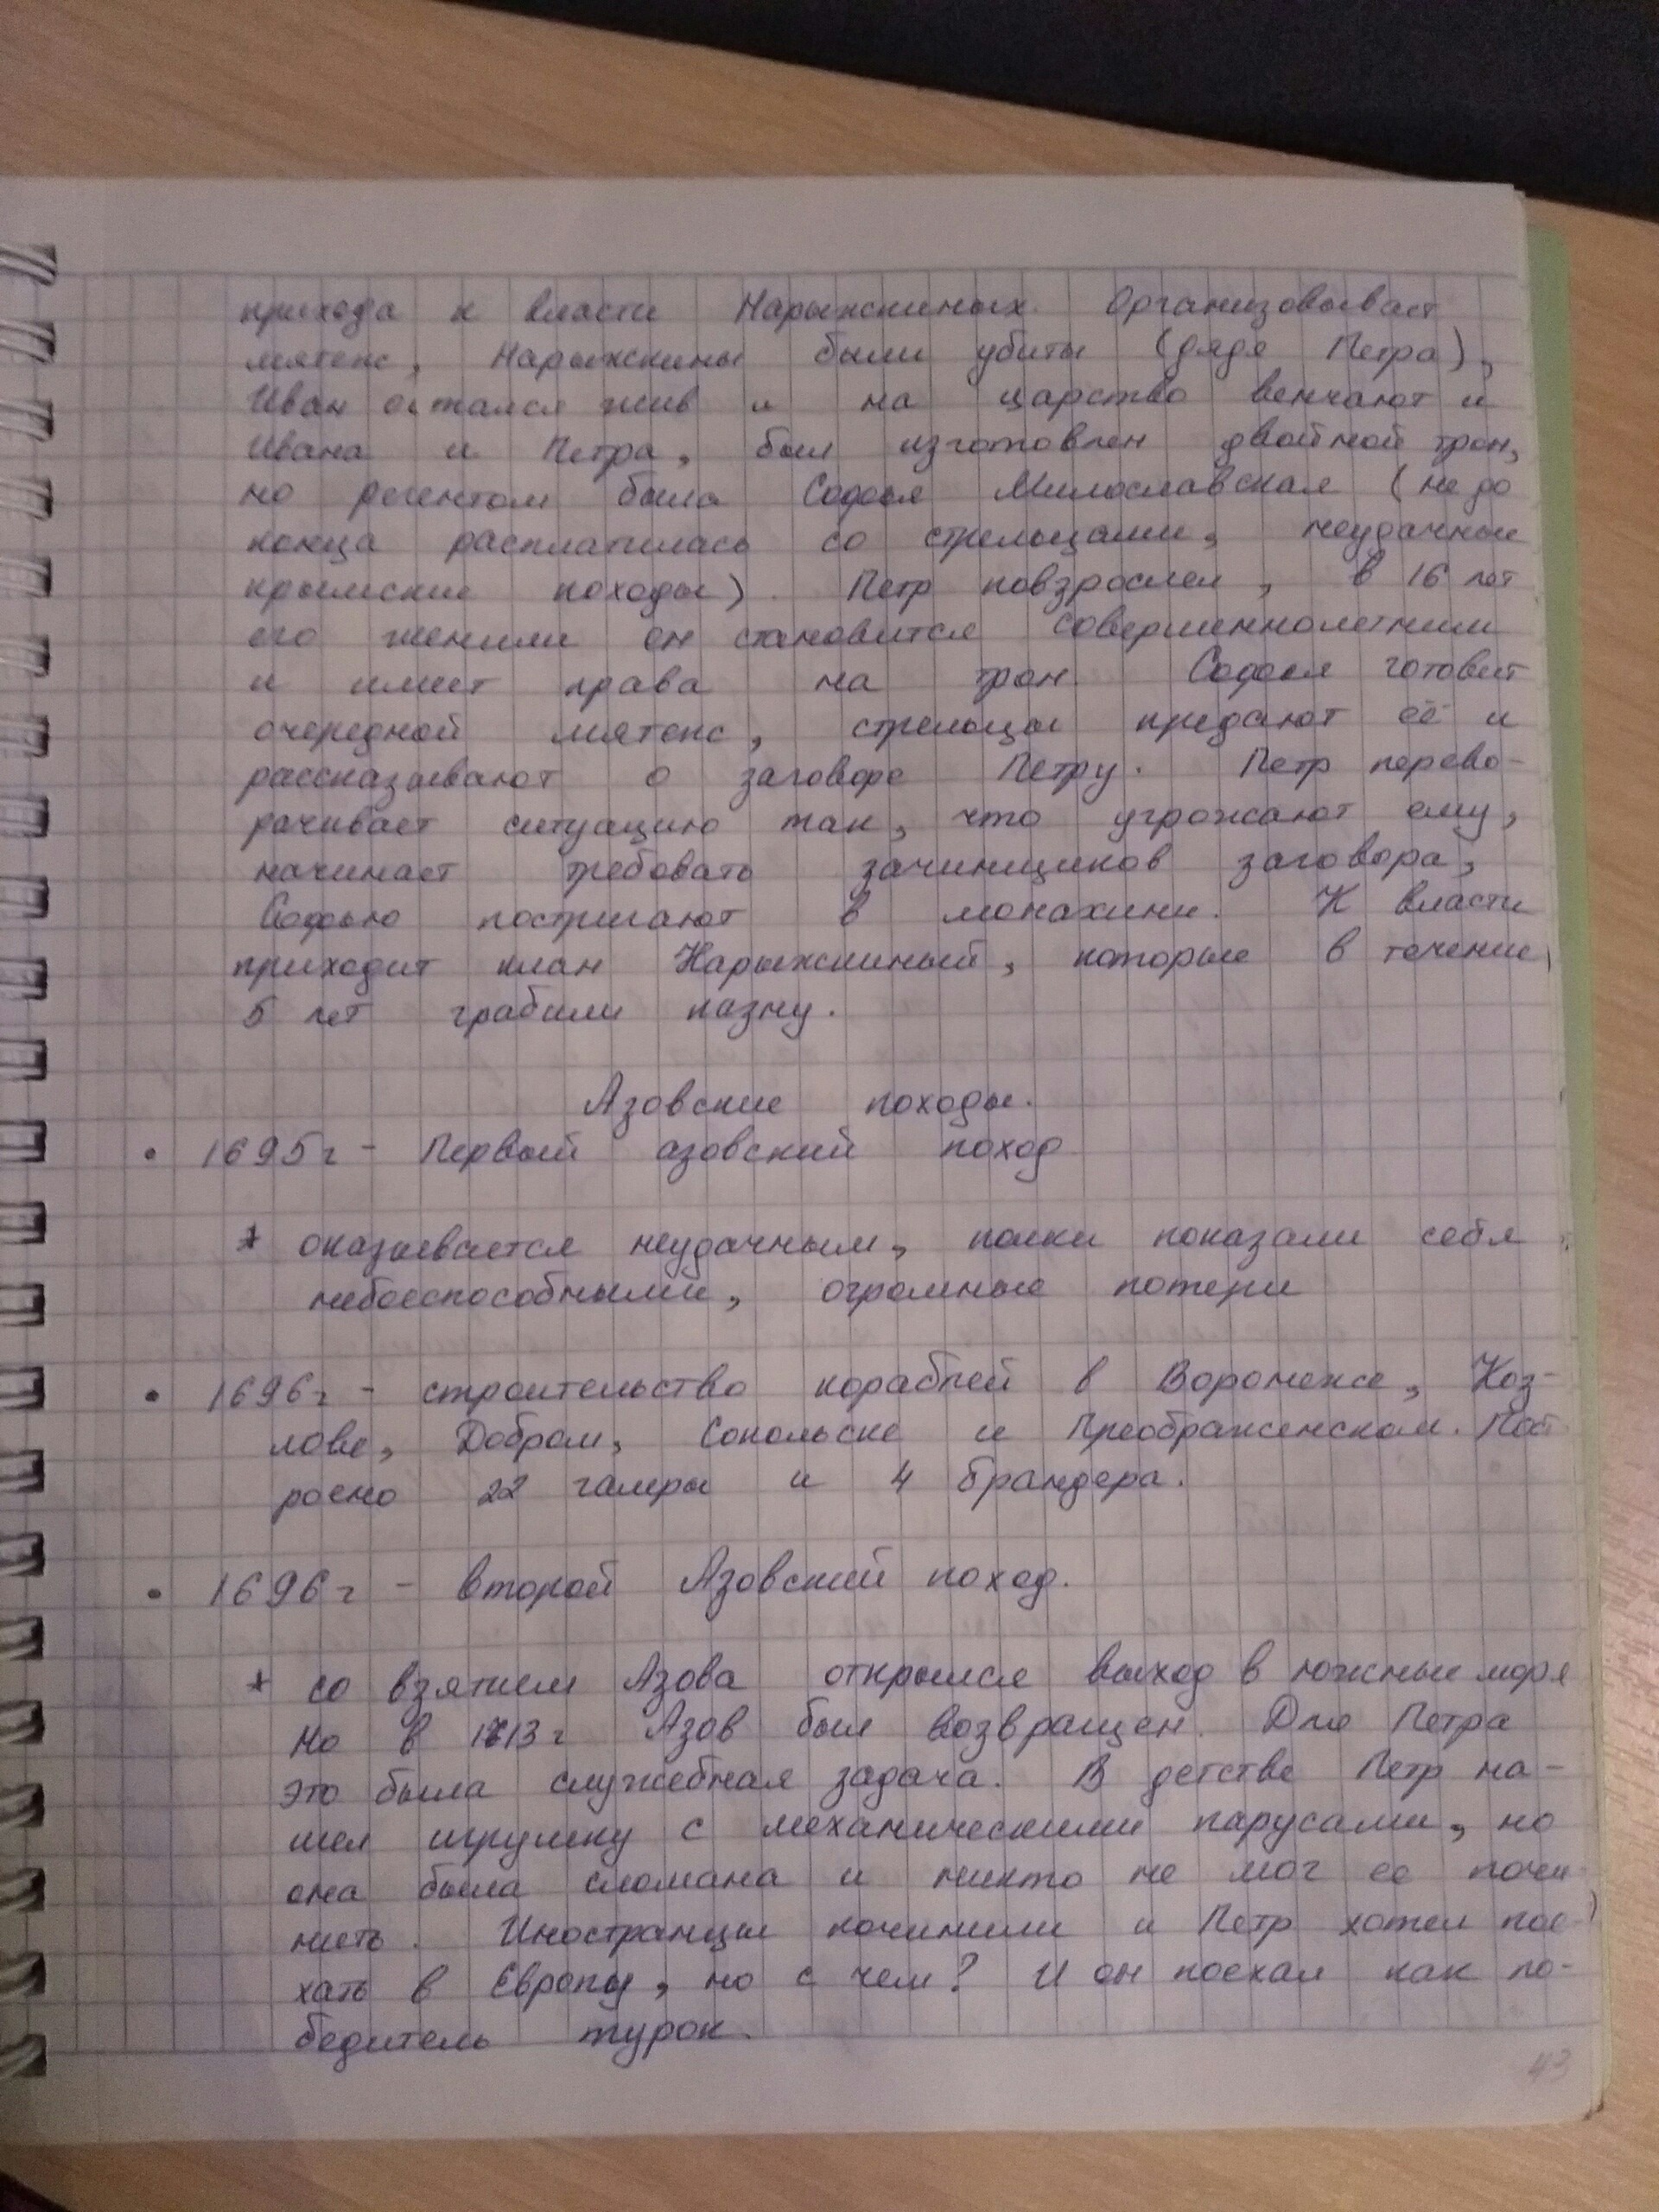 прихода к власти Нарышкиных. Организовывает
мятеж, Нарышкины были убиты (дядя Петра),
Иван остался жив и на царство венчают и
Ивана и Петра, был изготовлен двойной трон,
но регентом была Софья Милославская (не до
конца расплатилась со стрельцами, неудачные
крымские походы). Петр повзрослел, в 16 лет
его женили он становится совершеннолетним
и имеет права на трон. Софья готовит
очередной мятеж, стрельцы предают её и
рассказывают о заговоре Петру. Петр перево-
рачивает ситуацию так, что угрожают ему,
начинает требовать зачинщиков заговора,
Софью постригают в монахини. К власти
приходит клан Нарышкиный, которые в течение
5 лет грабили казну.
Азовские походы.
• 1695г - Первый азовский поход
* оказывается неудачным, полки показали себя
небоеспособными, огромные потери
• 1696г - строительство кораблей в Воронеже, Коз-
лове, Добром, Сокольске и Преображенском. Пост
роено 22 галеры и 4 брандера.
• 1696г - второй Азовский поход.
* со взятием Азова открылся выход в южные моря
Но в 1713г Азов был возвращен. Для Петра
это была служебная задача. В детстве Петр на-
шел игрушку с механическими парусами, но
она была сломана и никто не мог ее почи-
нить. Иностранцы починили и Петр хотел пое-
хать в Европу, но с чем? И он поехал как по-
бедитель турок.
43